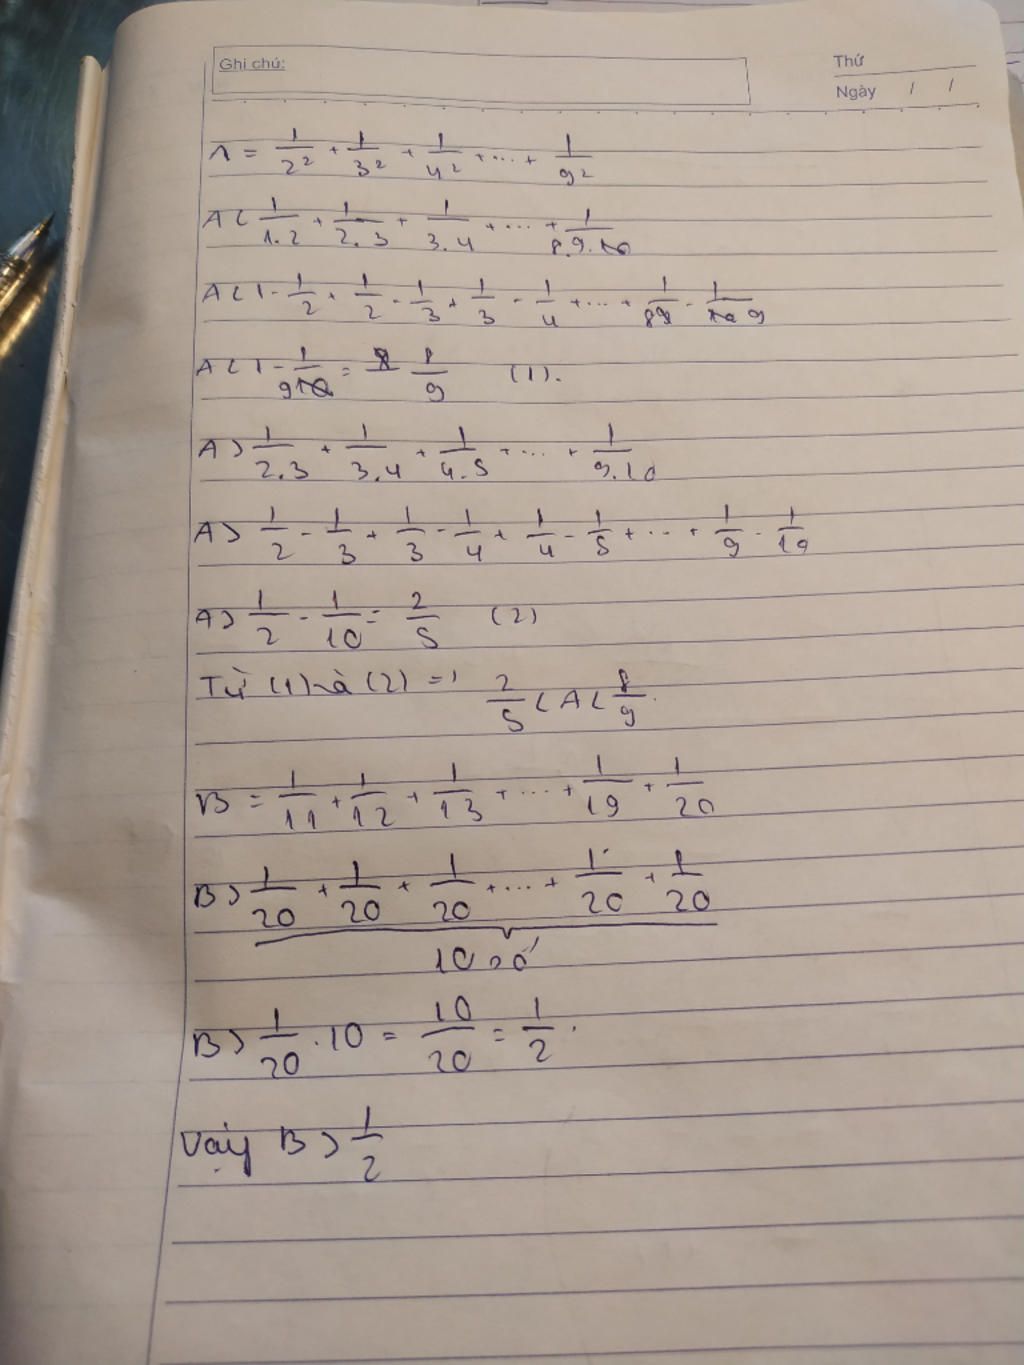 Ghi chú:
Thứ
Ngày / /
A = 1/2² + 1/3² + 1/4² + ... + 1/9²
A < 1/1.2 + 1/2.3 + 1/3.4 + ... + 1/8.9
A < 1 - 1/2 + 1/2 - 1/3 + 1/3 - 1/4 + ... + 1/8 - 1/9
A < 1 - 1/9 = 8/9 (1).
A > 1/2.3 + 1/3.4 + 1/4.5 + ... + 1/9.10
A > 1/2 - 1/3 + 1/3 - 1/4 + 1/4 - 1/5 + ... + 1/9 - 1/10
A > 1/2 - 1/10 = 2/5 (2)
Từ (1) và (2) => 2/5 < A < 8/9.
B = 1/11 + 1/12 + 1/13 + ... + 1/19 + 1/20
B > 1/20 + 1/20 + 1/20 + ... + 1/20 + 1/20
10 số
B > 1/20 . 10 = 10/20 = 1/2.
Vậy B > 1/2